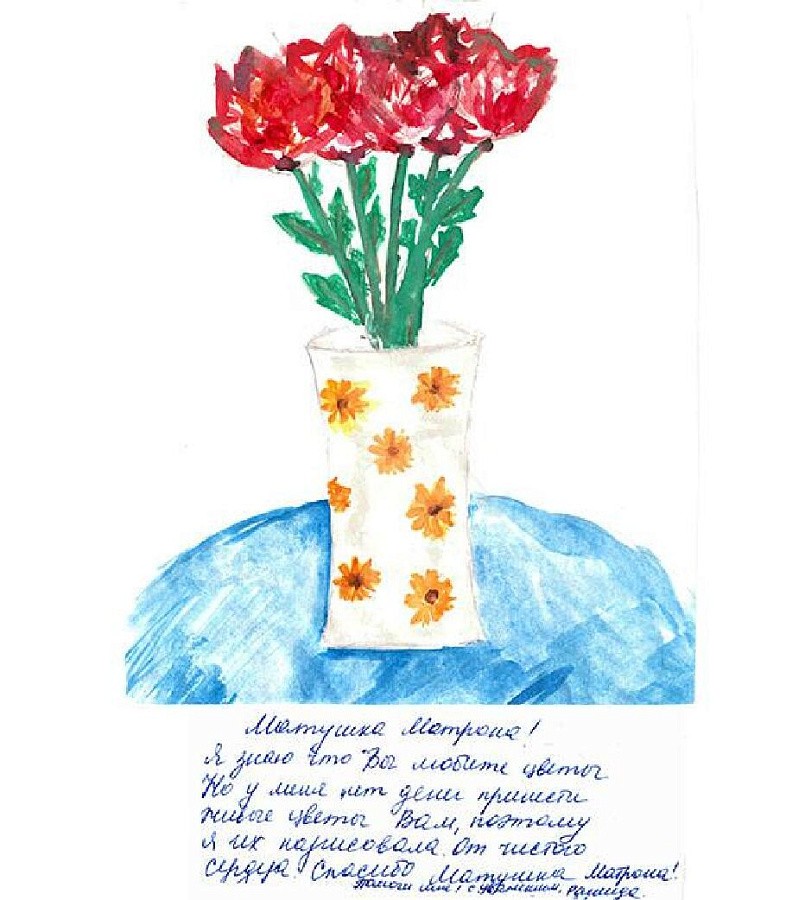 Матушка Матрона!
Я знаю что Вы любите цветы
Но у меня нет денег принести
живые цветы Вам, поэтому
я их нарисовала от чистого
сердца. Спасибо Матушка Матрона!
Помоги мне! с уважением,